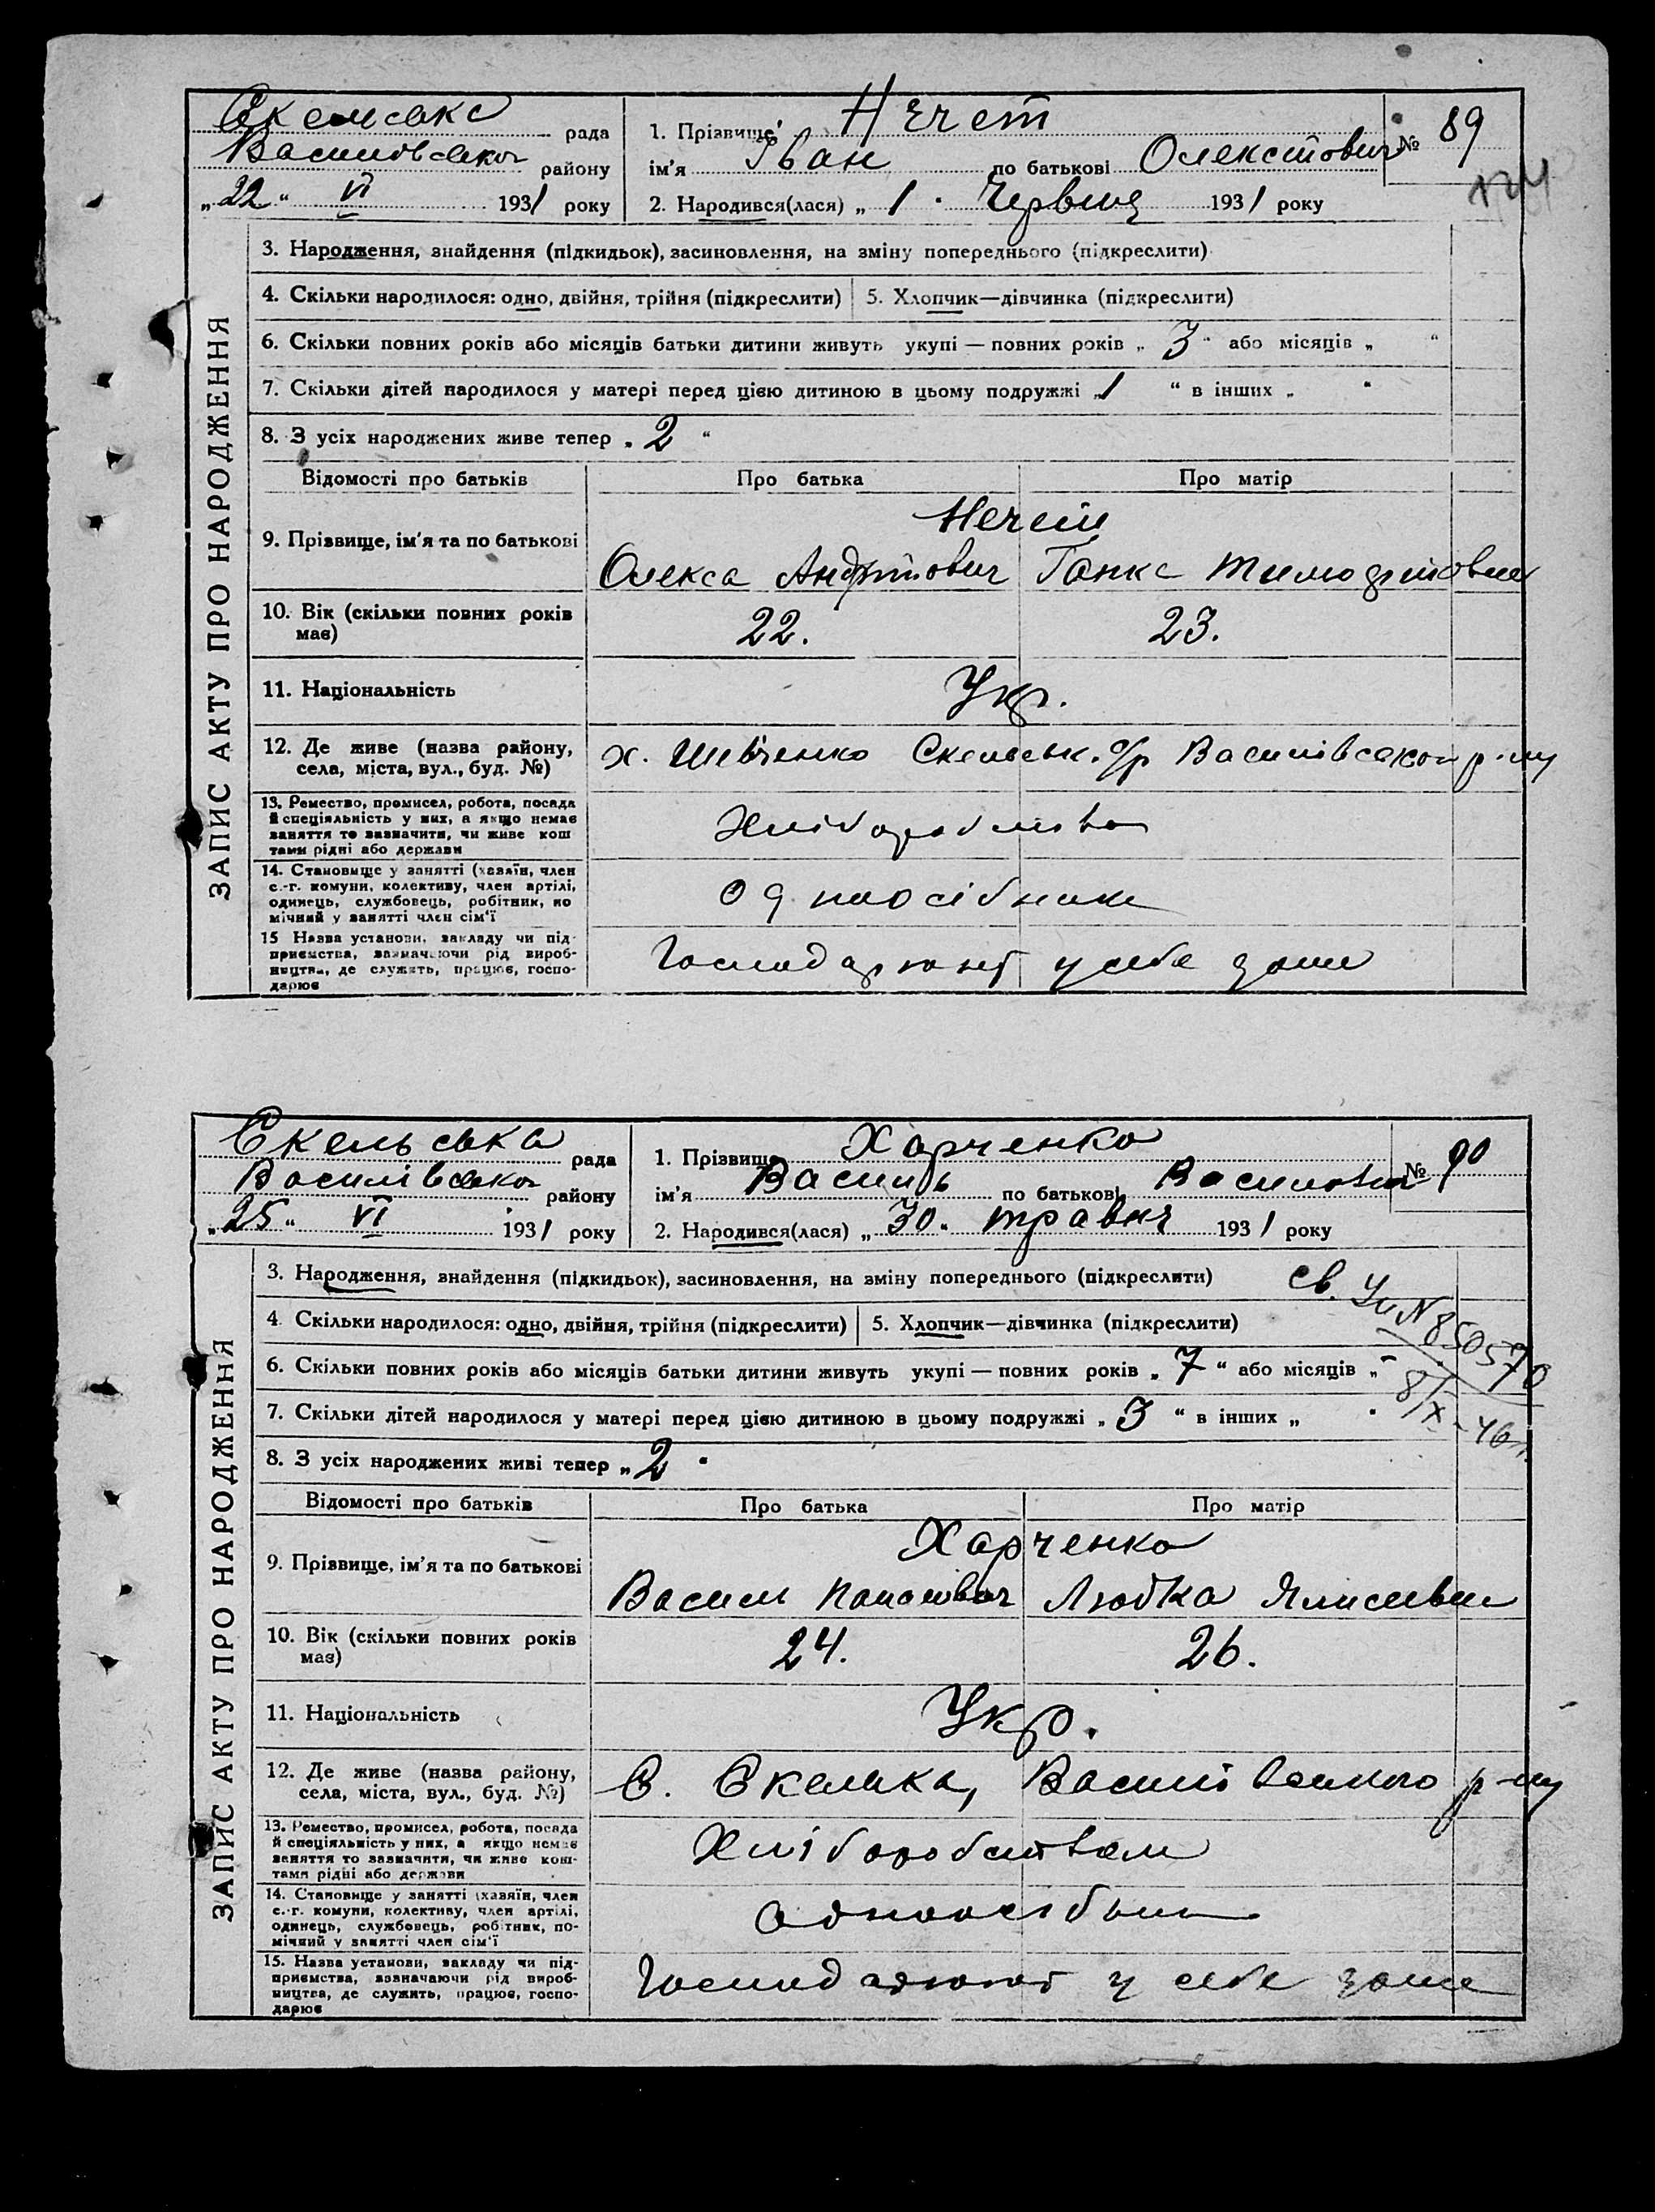 Скельська рада
Василівського району
„22“ VI 1931 року
1. Прізвище Нечет
№ 89
ім'я Іван по батькові Олексійович
2. Народився(лася) „1“ Червня 1931 року
ЗАПИС АКТУ ПРО НАРОДЖЕННЯ
3. Народження, знайдення (підкидьок), засиновлення, на зміну попереднього (підкреслити)
4. Скільки народилося: одно, двійня, трійня (підкреслити) 5. Хлопчик—дівчинка (підкреслити)
6. Скільки повних років або місяців батьки дитини живуть укупі — повних років „3“ або місяців „ “
7. Скільки дітей народилося у матері перед цією дитиною в цьому подружжі „1 “ в інших „ “
8. З усіх народжених живе тепер „2 “
Відомості про батьків Про батька Про матір
9. Прізвище, ім'я та по батькові
Нечет
Олекса Андрійович Ганка Тимофіївна
10. Вік (скільки повних років має)
22. 23.
11. Національність Укр.
12. Де живе (назва району, села, міста, вул., буд. №)
х. Шевченко Скельськ. с/р Василівського р-ну
13. Ремество, промисел, робота, посада
й спеціяльність у них, а якщо немає
заняття то зазначити, чи живе кош
тами рідні або держави
Хліборобство
14. Становище у занятті (хазяїн, член
с.-г. комуни, колективу, член артілі,
одинець, службовець, робітник, по
мічний у занятті член сім'ї
одноосібники
15 Назва установи, закладу чи під-
приємства, зазначаючи рід вироб-
ництва, де служить, працює, госпо-
дарює
Господарюют у себе дома
Скельська рада
Василівського району
„25“ VI 1931 року
1. Прізвище Харченко
№ 90
ім'я Василь по батькові Васильович
2. Народився(лася) „30“ травня 1931 року
ЗАПИС АКТУ ПРО НАРОДЖЕННЯ
3. Народження, знайдення (підкидьок), засиновлення, на зміну попереднього (підкреслити)
св. Уи N 850570
8/IX-46 г.
4. Скільки народилося: одно, двійня, трійня (підкреслити) 5. Хлопчик—дівчинка (підкреслити)
6. Скільки повних років або місяців батьки дитини живуть укупі — повних років „7“ або місяців „–
7. Скільки дітей народилося у матері перед цією дитиною в цьому подружжі „3 “ в інших „ “
8. З усіх народжених живі тепер „2 “
Відомості про батьків Про батька Про матір
9. Прізвище, ім'я та по батькові
Харченко
Васили Панасович Любка
10. Вік (скільки повних років має)
24. 26.
11. Національність Укр.
12. Де живе (назва району, села, міста, вул., буд. №)
С. Скелька, Василівського р-ну
13. Ремество, промисел, робота, посада
й спеціяльність у них, а якщо немає
заняття то зазначити, чи живе кош-
тами рідні або держави
Хліборобством
14. Становище у занятті (хазяїн, член
с.-г. комуни, колективу, член артілі,
одинець, службовець, робітник, по-
мічний у занятті член сім'ї
одноосібник
15. Назва установи, закладу чи під-
приємства, зазначаючи рід вироб-
ництва, де служить, працює, госпо-
дарює
Господарюют у себе дома